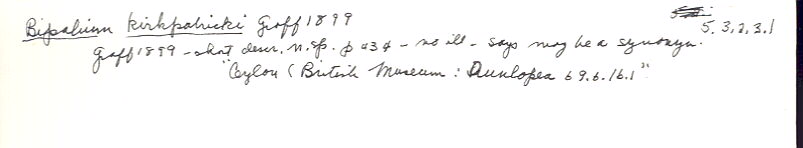 Bipalium kirkpatricki Graff 1899
5.3.2.3.1
Graff 1899 - short descr. n.sp. p 434 - no ill - says may be a synonym.
"Ceylon (British Museum: Dunlopea 69.6.16.1"